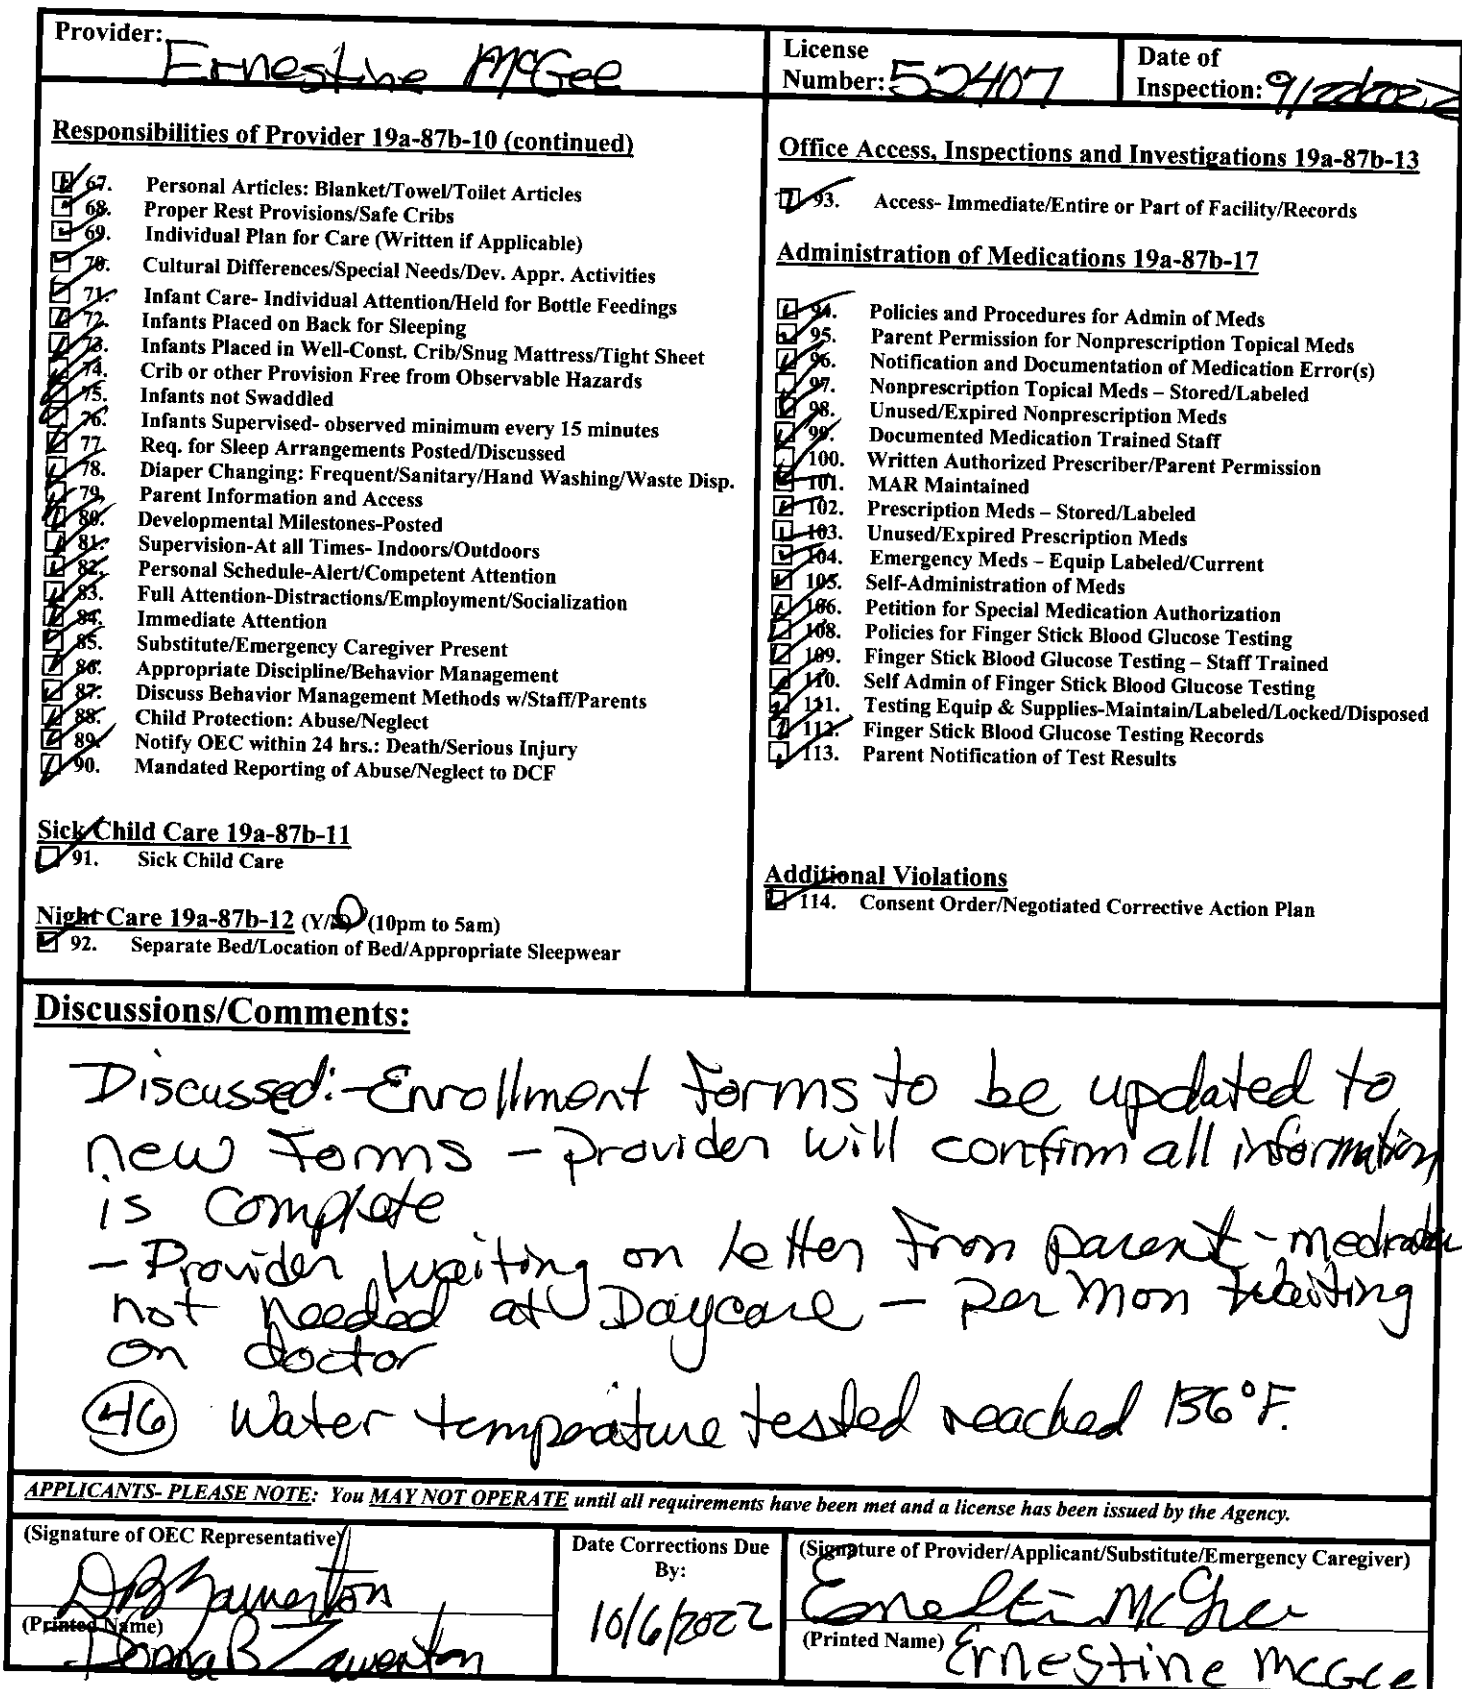 Provider: Ernestine McGee
License Number: 52407
Date of Inspection: 9/22/2022
Responsibilities of Provider 19a-87b-10 (continued)
67. Personal Articles: Blanket/Towel/Toilet Articles
68. Proper Rest Provisions/Safe Cribs
69. Individual Plan for Care (Written if Applicable)
70. Cultural Differences/Special Needs/Dev. Appr. Activities
71. Infant Care- Individual Attention/Held for Bottle Feedings
72. Infants Placed on Back for Sleeping
73. Infants Placed in Well-Const. Crib/Snug Mattress/Tight Sheet
74. Crib or other Provision Free from Observable Hazards
75. Infants not Swaddled
76. Infants Supervised- observed minimum every 15 minutes
77. Req. for Sleep Arrangements Posted/Discussed
78. Diaper Changing: Frequent/Sanitary/Hand Washing/Waste Disp.
79. Parent Information and Access
80. Developmental Milestones-Posted
81. Supervision-At all Times- Indoors/Outdoors
82. Personal Schedule-Alert/Competent Attention
83. Full Attention-Distractions/Employment/Socialization
84. Immediate Attention
85. Substitute/Emergency Caregiver Present
86. Appropriate Discipline/Behavior Management
87. Discuss Behavior Management Methods w/Staff/Parents
88. Child Protection: Abuse/Neglect
89. Notify OEC within 24 hrs.: Death/Serious Injury
90. Mandated Reporting of Abuse/Neglect to DCF
Sick Child Care 19a-87b-11
91. Sick Child Care
Night Care 19a-87b-12 (Y/N) (10pm to 5am)
92. Separate Bed/Location of Bed/Appropriate Sleepwear
Office Access, Inspections and Investigations 19a-87b-13
93. Access- Immediate/Entire or Part of Facility/Records
Administration of Medications 19a-87b-17
94. Policies and Procedures for Admin of Meds
95. Parent Permission for Nonprescription Topical Meds
96. Notification and Documentation of Medication Error(s)
97. Nonprescription Topical Meds – Stored/Labeled
98. Unused/Expired Nonprescription Meds
99. Documented Medication Trained Staff
100. Written Authorized Prescriber/Parent Permission
101. MAR Maintained
102. Prescription Meds – Stored/Labeled
103. Unused/Expired Prescription Meds
104. Emergency Meds – Equip Labeled/Current
105. Self-Administration of Meds
106. Petition for Special Medication Authorization
108. Policies for Finger Stick Blood Glucose Testing
109. Finger Stick Blood Glucose Testing – Staff Trained
110. Self Admin of Finger Stick Blood Glucose Testing
111. Testing Equip & Supplies-Maintain/Labeled/Locked/Disposed
112. Finger Stick Blood Glucose Testing Records
113. Parent Notification of Test Results
Additional Violations
114. Consent Order/Negotiated Corrective Action Plan
Discussions/Comments:
Discussed: - Enrollment forms to be updated to
new forms - provider will confirm all information
is complete
- Provider waiting on letter from parent - medication
not needed at Daycare - per mom waiting
on doctor
46 Water temperature tested reached 136°F.
APPLICANTS- PLEASE NOTE: You MAY NOT OPERATE until all requirements have been met and a license has been issued by the Agency.
(Signature of OEC Representative)
(Printed Name)
Donna B
Date Corrections Due
By:
10/6/2022
(Signature of Provider/Applicant/Substitute/Emergency Caregiver)
Ernestine McGee
(Printed Name) Ernestine McGee